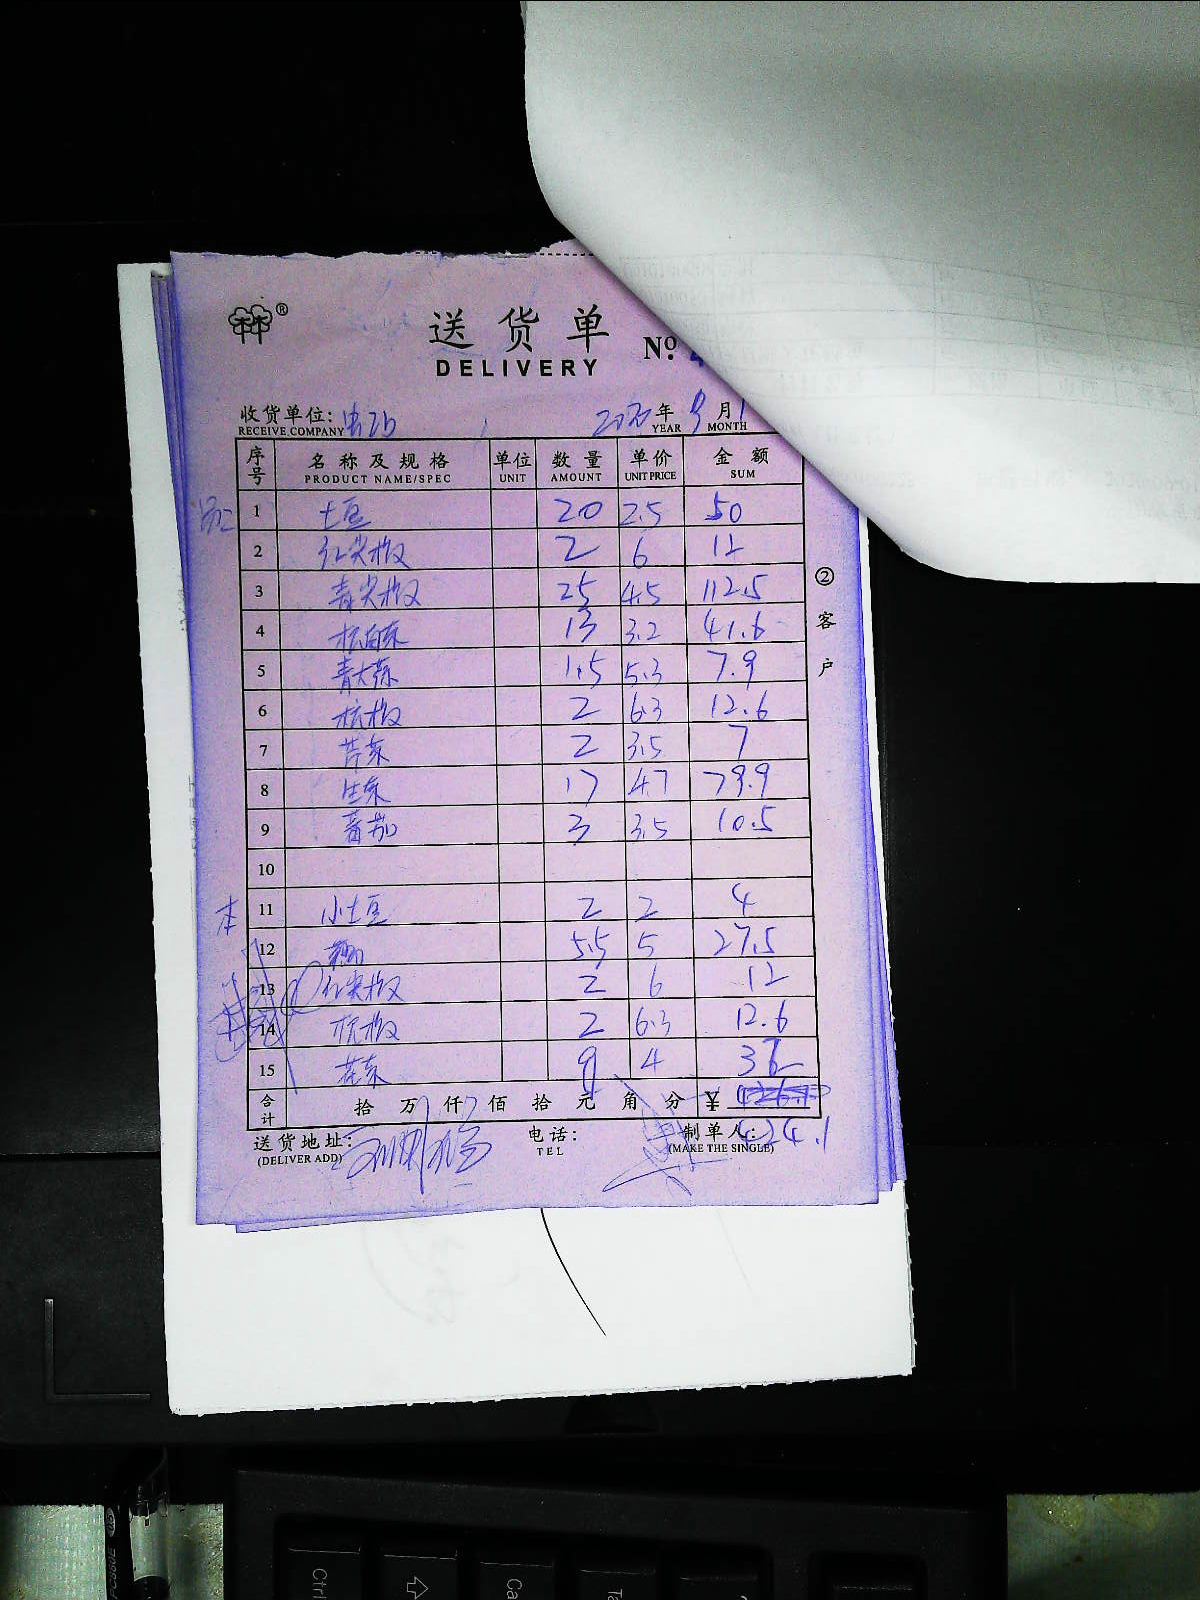 ®
送货单
DELIVERY
Nº
收货单位:
RECEIVE COMPANY
2020年9月1
YEAR MONTH
序号 名称及规格 单位 数量 单价 金额
PRODUCT NAME/SPEC UNIT AMOUNT UNIT PRICE SUM
1 土豆 20 2.5 50
2 红尖椒 2 6 12
3 青尖椒 25 4.5 112.5
4 杭白菜 13 3.2 41.6
5 青大蒜 1.5 5.3 7.9
6 杭椒 2 6.3 12.6
7 芹菜 2 3.5 7
8 生菜 17 4.7 79.9
9 番茄 3 3.5 10.5
10
本 11 小土豆 2 2 4
12 5.5 5 27.5
13 红尖椒 2 6 12
14 杭椒 2 6.3 12.6
15 花菜 9 4 36
合计 拾万仟佰拾元角分 ¥
424.1
送货地址: 电话: 制单人:
(DELIVER ADD) TEL (MAKE THE SINGLE)
②客户
Ctrl